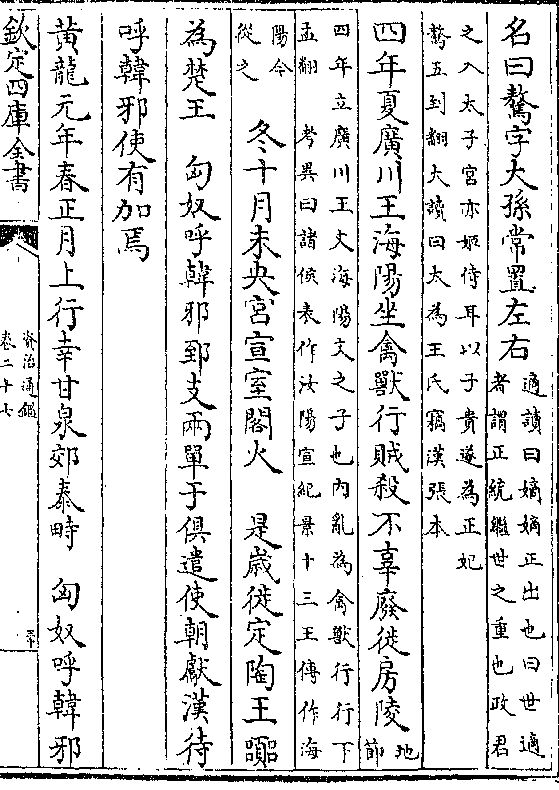 名曰驁字大孫常置左右適讀曰嫡嫡正出也曰世適
者謂正統繼世之重也政君
之入太子宮亦姬侍耳以子貴遂為正妃
驁五到翻大讀曰太為王氏竊漢張本
四年夏廣川王海陽坐禽獸行賊殺不辜廢徙房陵地
節
四年立廣川王文海陽文之子也内亂為禽獸行行下
孟翻 考異曰諸侯表作汝陽宣紀景十三王傳作海
陽今
從之 冬十月未央宮宣室閣火 是歳徙定陶王囂
為楚王 匈奴呼韓邪郅支兩單于俱遣使朝獻漢待
呼韓邪使有加焉
黃龍元年春正月上行幸甘泉郊泰畤 匈奴呼韓邪
欽定四庫全書
資治通鑑
卷二十七